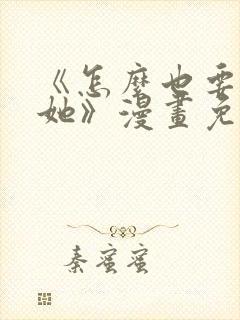 《怎麼也要
她》漫畫免
秦蜜蜜